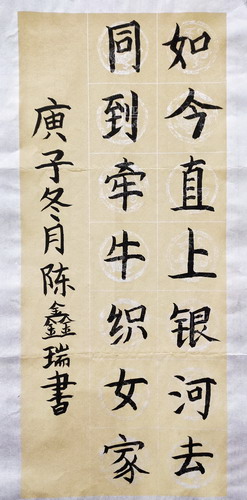 如今直上银河去
同到牵牛织女家
庚子冬月陈鑫瑞書